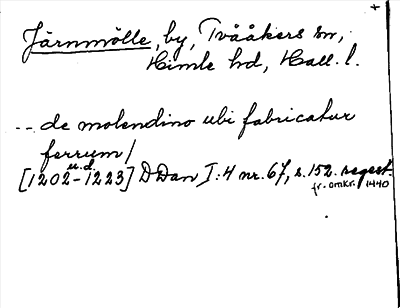 +
Järnmölle, by, Tvååkers sn,
Himle hd, Hall. l.
-- de molendino ubi fabricatur
ferrum/
u.d.
[1202-1223] DDan I:4 nr. 67, s. 152. regest.
fr. omkr. 1440